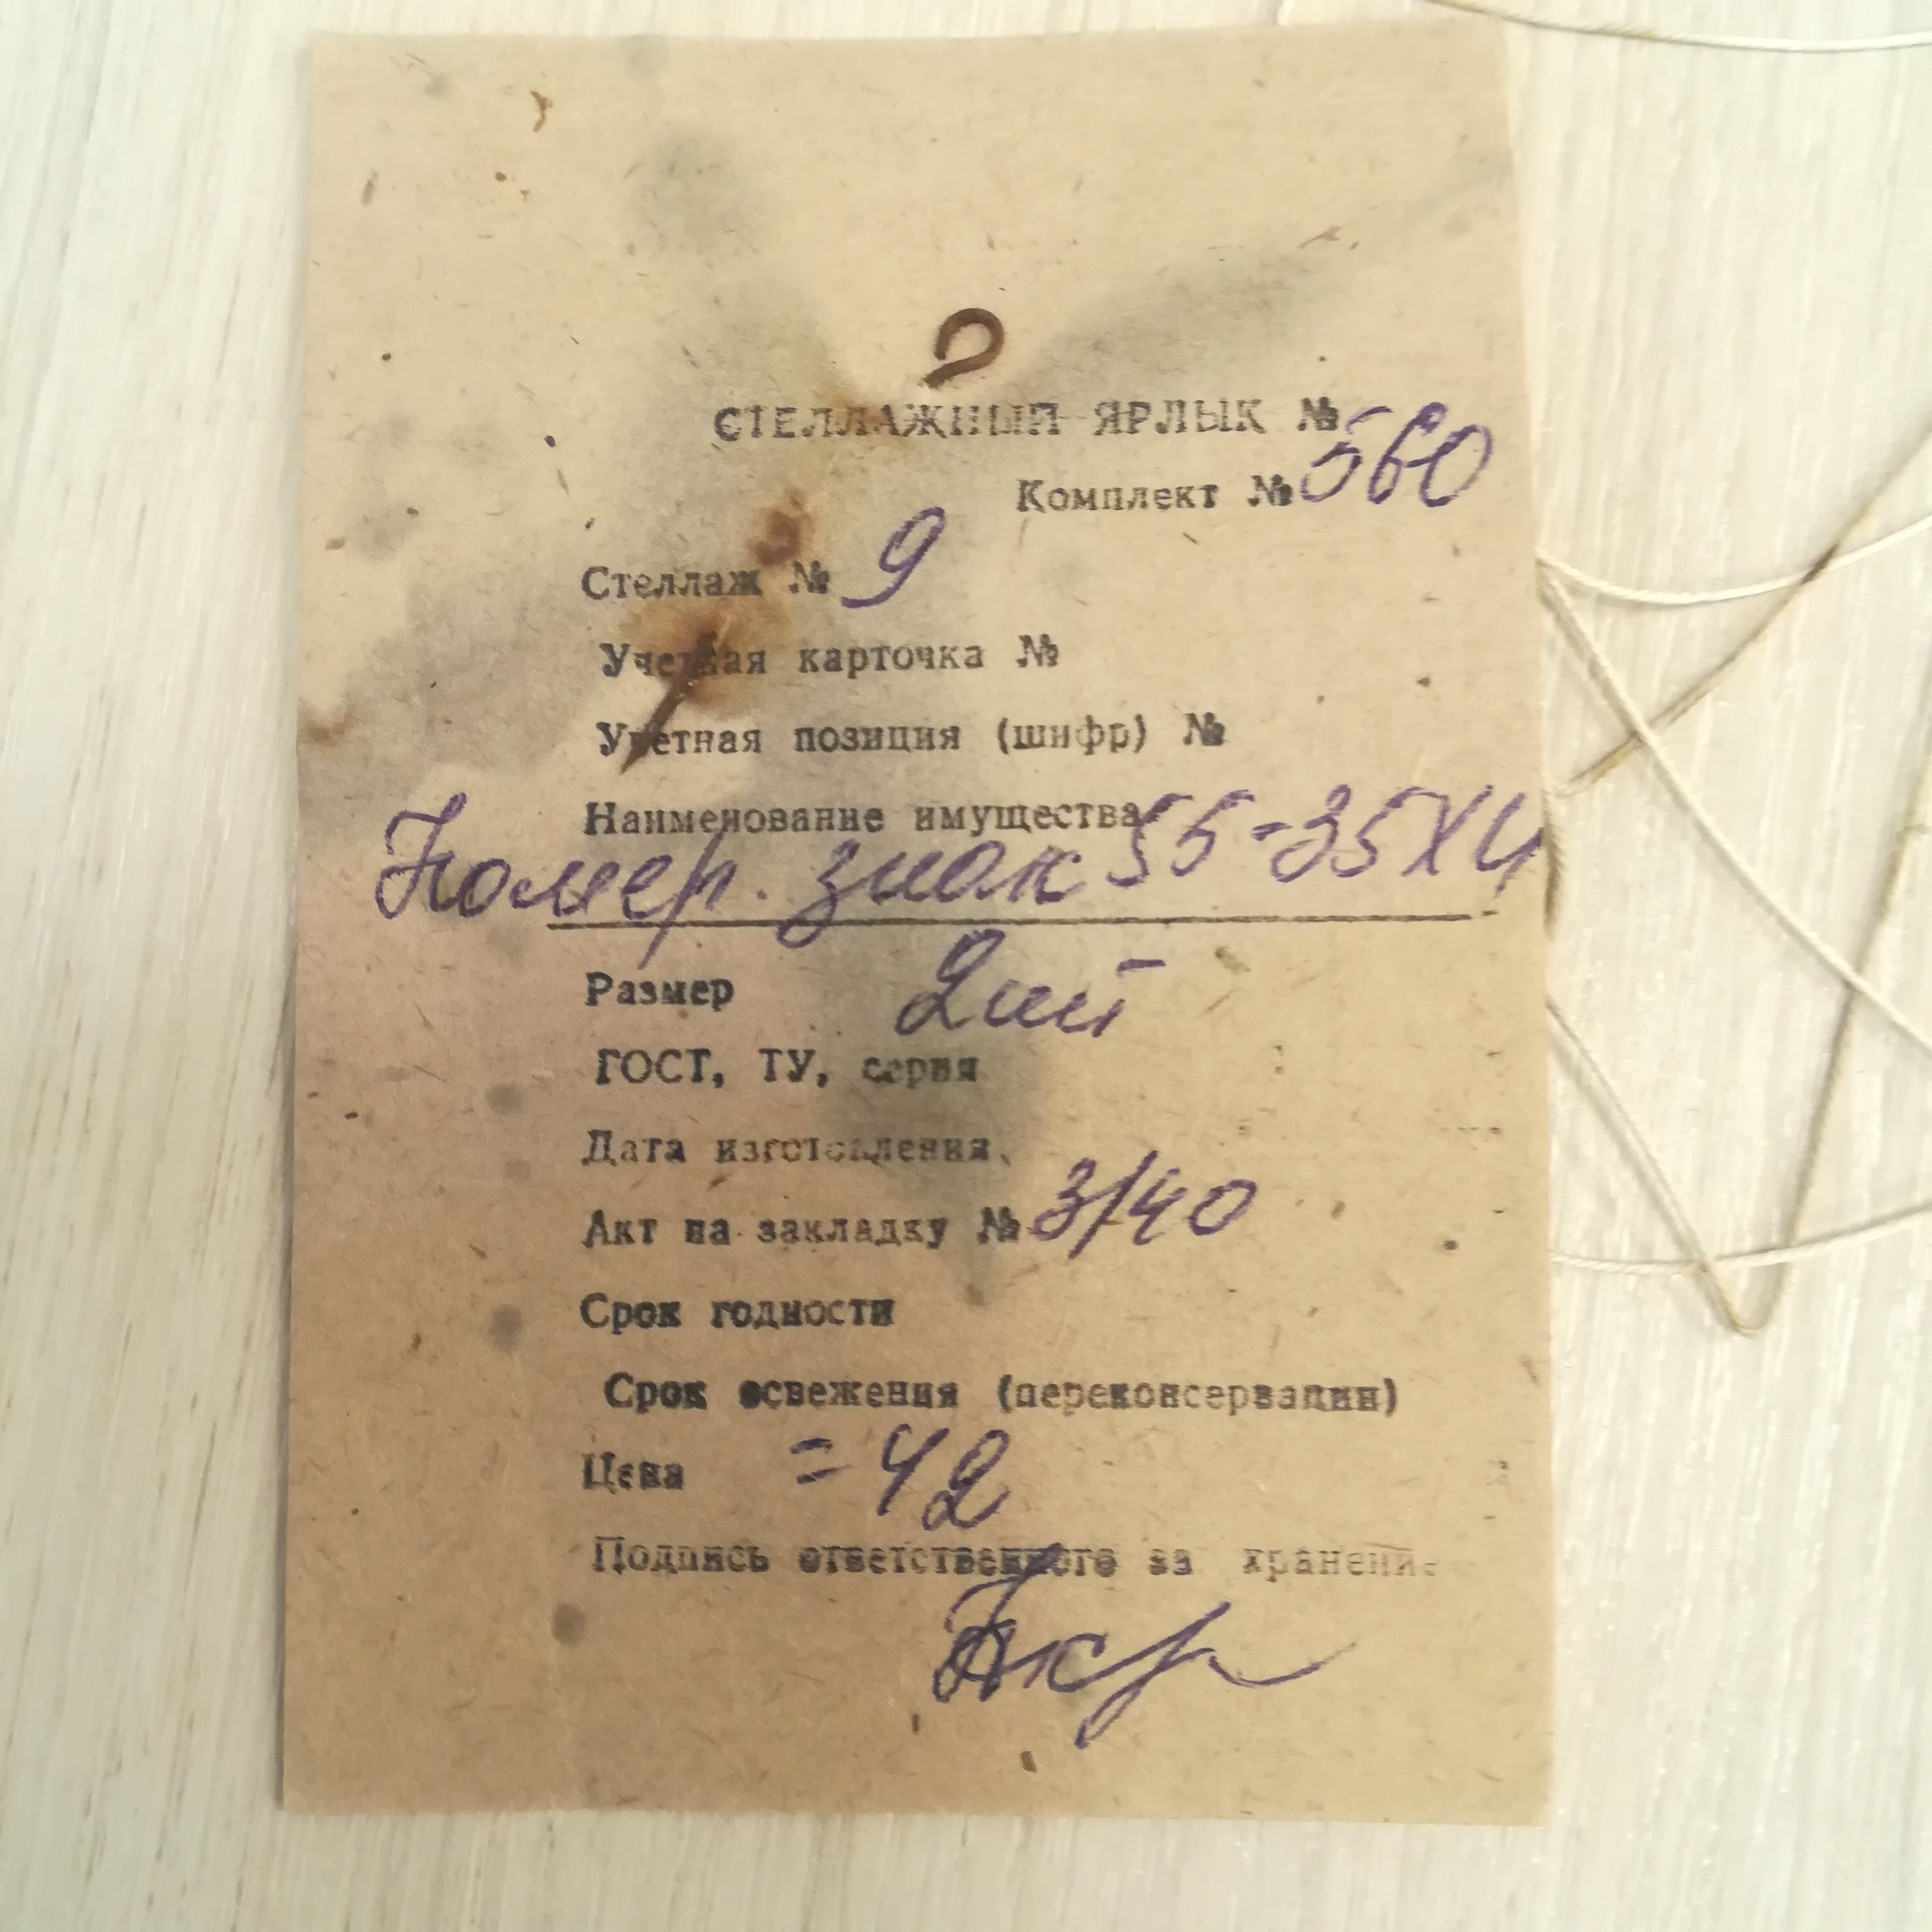 СТЕЛЛАЖНЫЙ ЯРЛЫК №
Комплект № 560
Стеллаж № 9
Учетная карточка №
Учетная позиция (шифр) №
Наименование имущества
Номер. знак 55-35ХЦ
Размер 2шт
ГОСТ, ТУ, серия
Дата изготовления
Акт на закладку № 3/40
Срок годности
Срок освежения (переконсервации)
Цена =42
Подпись ответственного за хранение